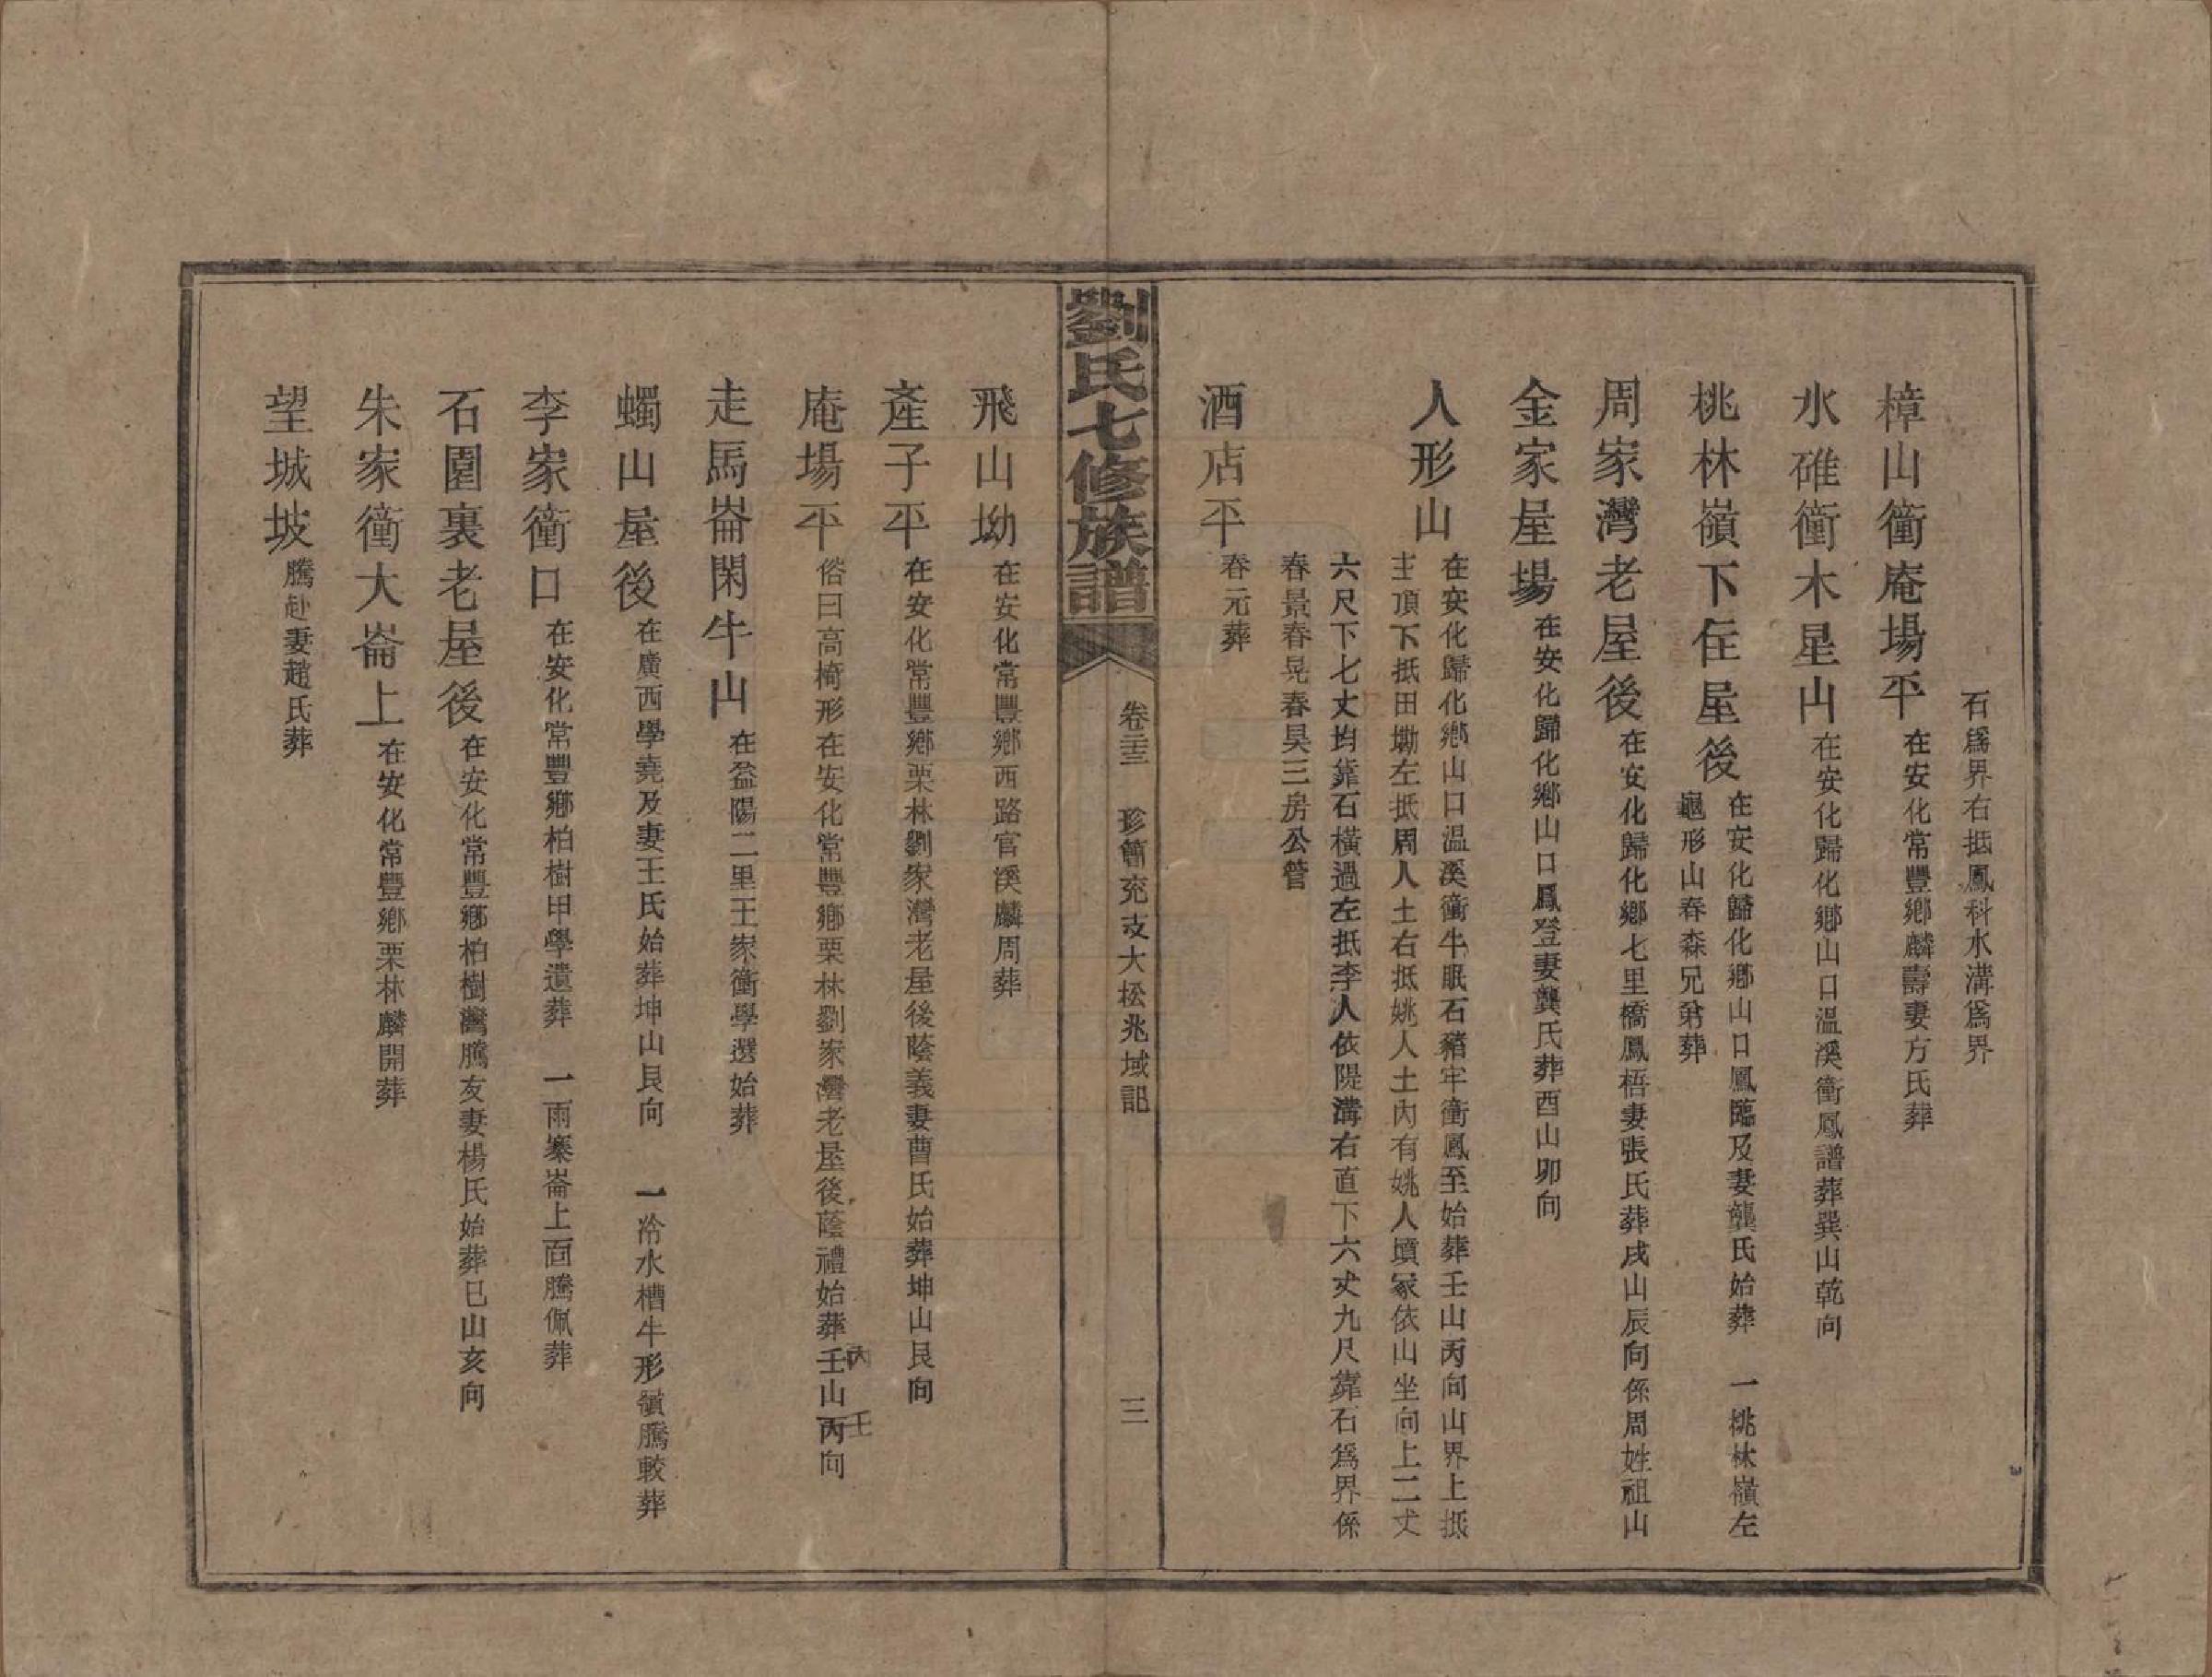 石爲界右抵鳳科水溝爲界
樟山衝庵場平在安化常豐鄉麟壽妻方氏葬
水碓衝木星山在安化歸化鄉山口溫溪衝鳳譜葬巽山乾向
桃林嶺下住屋後在安化歸化鄉山口鳳臨及妻龔氏始葬 一桃林嶺左
龜形山春森兄弟葬
周家灣老屋後在安化歸化鄉七里橋鳳梧妻張氏葬戌山辰向係周姓祖山
金家屋場在安化歸化鄉山口鳳登妻龔氏葬酉山卯向
人形山在安化歸化鄉山口溫溪衝牛眠石豬牢衝鳳至始葬壬山丙向山界上抵
主頂下抵田墈左抵周人土右抵姚人土內有姚人墳冢依山坐向上二丈
六尺下七丈均靠石橫過左抵李人依隄溝右直下六丈九尺靠石爲界係
春景春晃春昊三房公管
酒店平春元葬
劉氏七修族譜 卷二十三 珍簡充支大松兆域記 三
飛山坳在安化常豐鄉西路官溪麟周葬
產子平在安化常豐鄉栗林劉家灣老屋後蔭義妻曹氏始葬坤山艮向
庵場平俗曰高椅形在安化常豐鄉栗林劉家灣老屋後蔭禮始葬壬山丙向
丙 壬
走馬崙閑牛山在益陽二里王家衝學選始葬
蠋山屋後在廣西學堯及妻王氏始葬坤山艮向 一冷水槽牛形嶺騰較葬
李家衝口在安化常豐鄉柏樹甲學遺葬 一雨寨崙上面騰佩葬
石園裏老屋後在安化常豐鄉柏樹灣騰友妻楊氏始葬巳山亥向
朱家衝大崙上在安化常豐鄉栗林麟開葬
望城坡騰赴妻趙氏葬